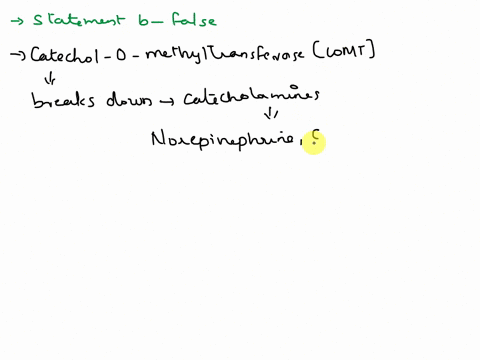 → Statement b - false
→ Catechol - O - methylTransferase [COMT]
breaks down → catecholamines
Norepinephrine,